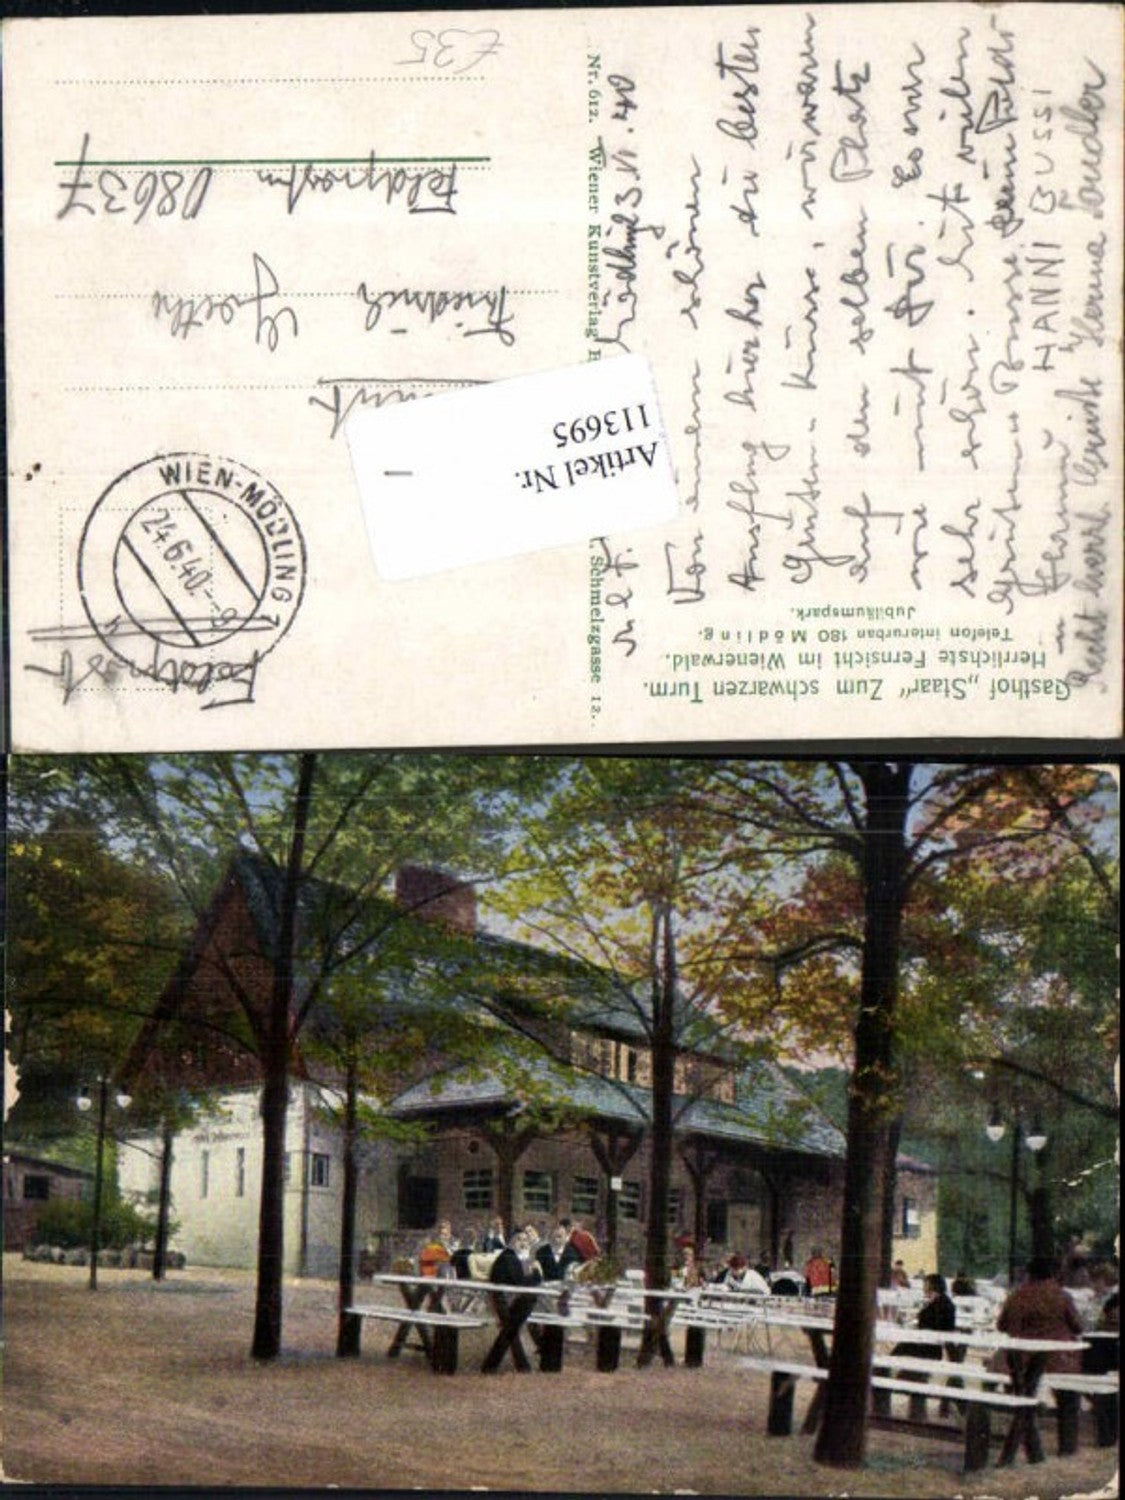 Gasthof „Staar“ Zum schwarzen Turm.
Herrlichste Fernsicht im Wienerwald.
Telefon interurban 180 Mödling.
Jubiläumspark.
Von einem schönen
Ausflug hierher die besten
Grüße u. Küsse, wir waren
auf den selben Platz
wie mit Dir. Es war
sehr schön. Mit vielen
Grüßen u. Busse Deine Poldi
HANNI BUSSI
Recht herzl. Grüße Herma
Nr. 612. Wiener Kunstverlag
Schmelzgasse 12.
Mödling 23.VI.40
Feldpost
WIEN-MÖDLING 7
24.6.40
Friedrich
Feldpostn 08637
£35
Artikel Nr.
113695